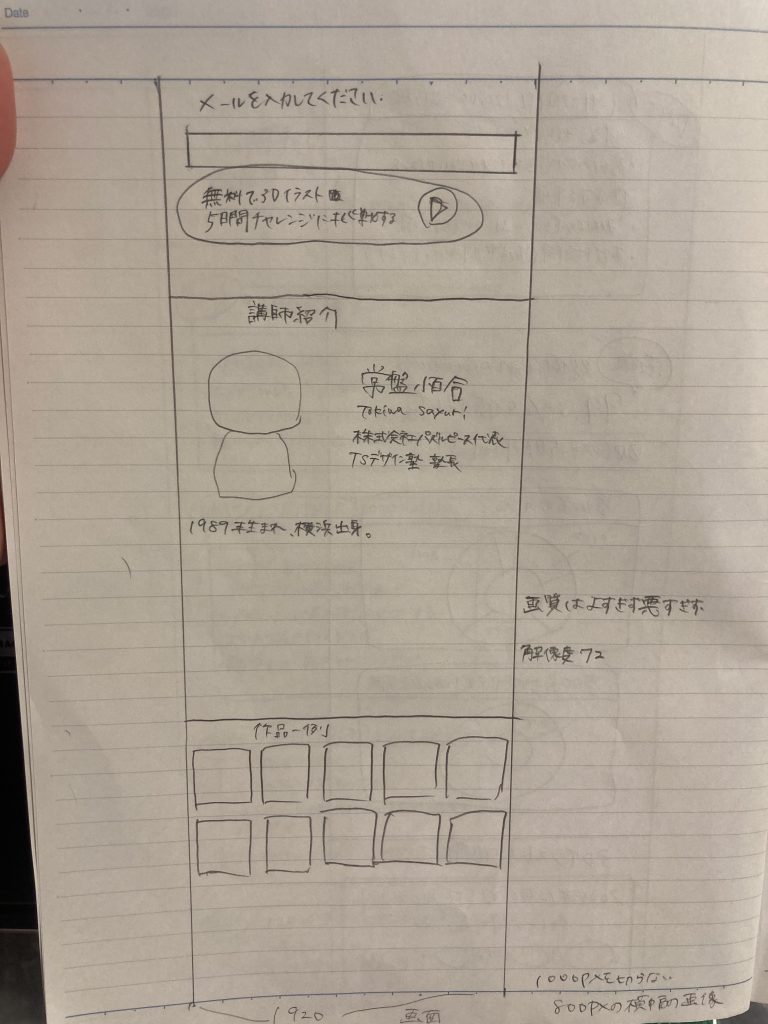 Date
メールを入力してください.
無料で3Dイラスト
5日間チャレンジに すぐ参加する
講師紹介
常盤小百合
Tokiwa Sayuri
株式会社パズルピース代表
TSデザイン塾 塾長
1989年生まれ、横浜出身。
画質はよすぎず悪すぎず
解像度72
作品一例
1000pxを切らない
800pxの横幅の画像
1920 画面